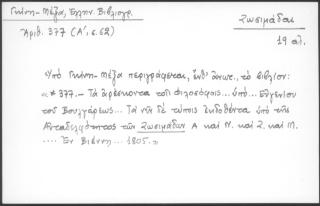 Γκίνη - Μέξα, Ελλην. Βιβλιογρ.
Ἀριθ. 377 (Α', σ. 62)
Ζωσιμάδαι
19 αἰ.
Ὑπὸ Γκίνη - Μέξα περιγράφεται, ἐνθ' ἄνωτ., τὸ βιβλίον:
« * 377. - Τὰ ἀρέσκοντα τοῖς φιλοσόφοις ... ὑπὸ ... Εὐγενίου
τοῦ Βουλγάρεως... Τὰ νῦν δὲ τύποις ἐκδοθέντα ὑπὸ τῆς
Αὐταδελφότητος τῶν Ζωσιμάδων Α καὶ Ν. καὶ Ζ. καὶ Μ.
.... Ἐν Βιέννῃ ... 1805. »